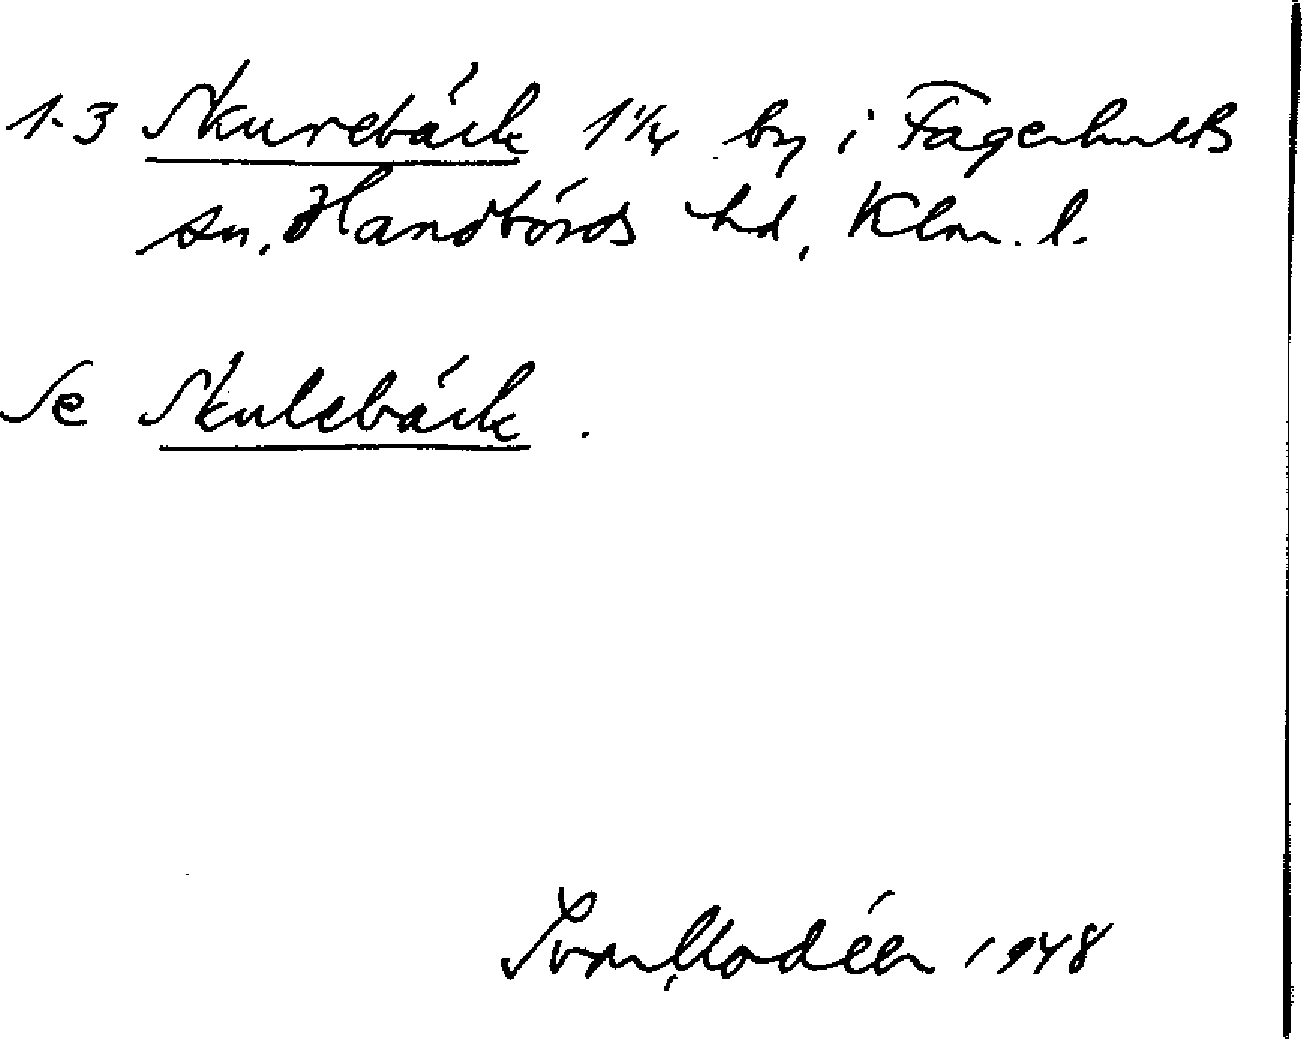 1-3 Skurebäck 1 1/4 by i Fagerhults
sn, Handbörds hd, Klm. l.
Se Skulebäck.
Ivar Modéer 1948